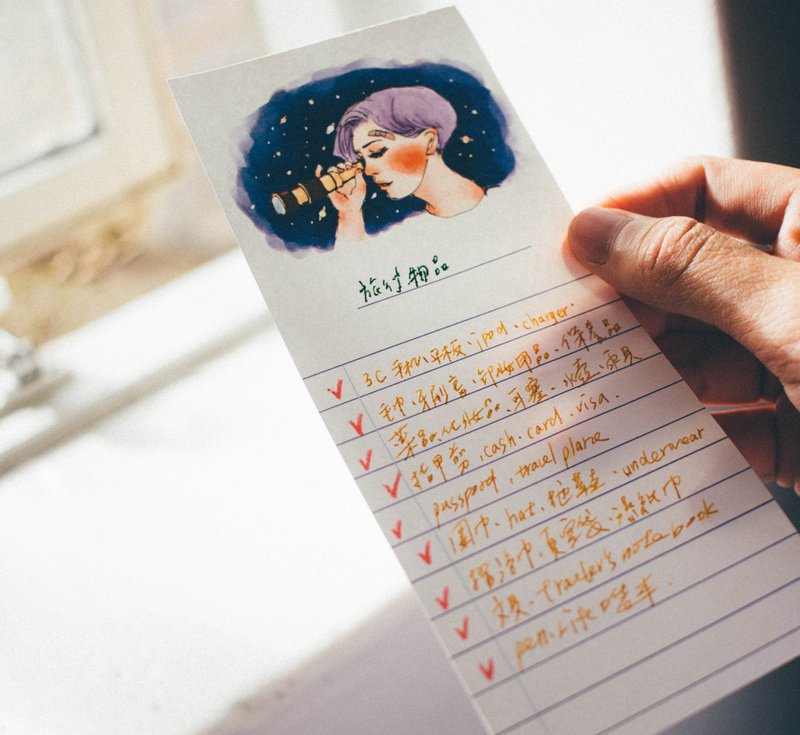 旅行物品
3C 手机、平板、ipod、charger.
毛巾、牙刷膏、卸妝用品、保養品
藥品、化妝品、耳塞、水壺、
指甲剪、cash、card、visa.
passport、travel plane
圍巾、hat、拖鞋、underwear
擦澡巾、真空袋、濕紙巾
文具、traveler's notebook
pen、life 啥手.